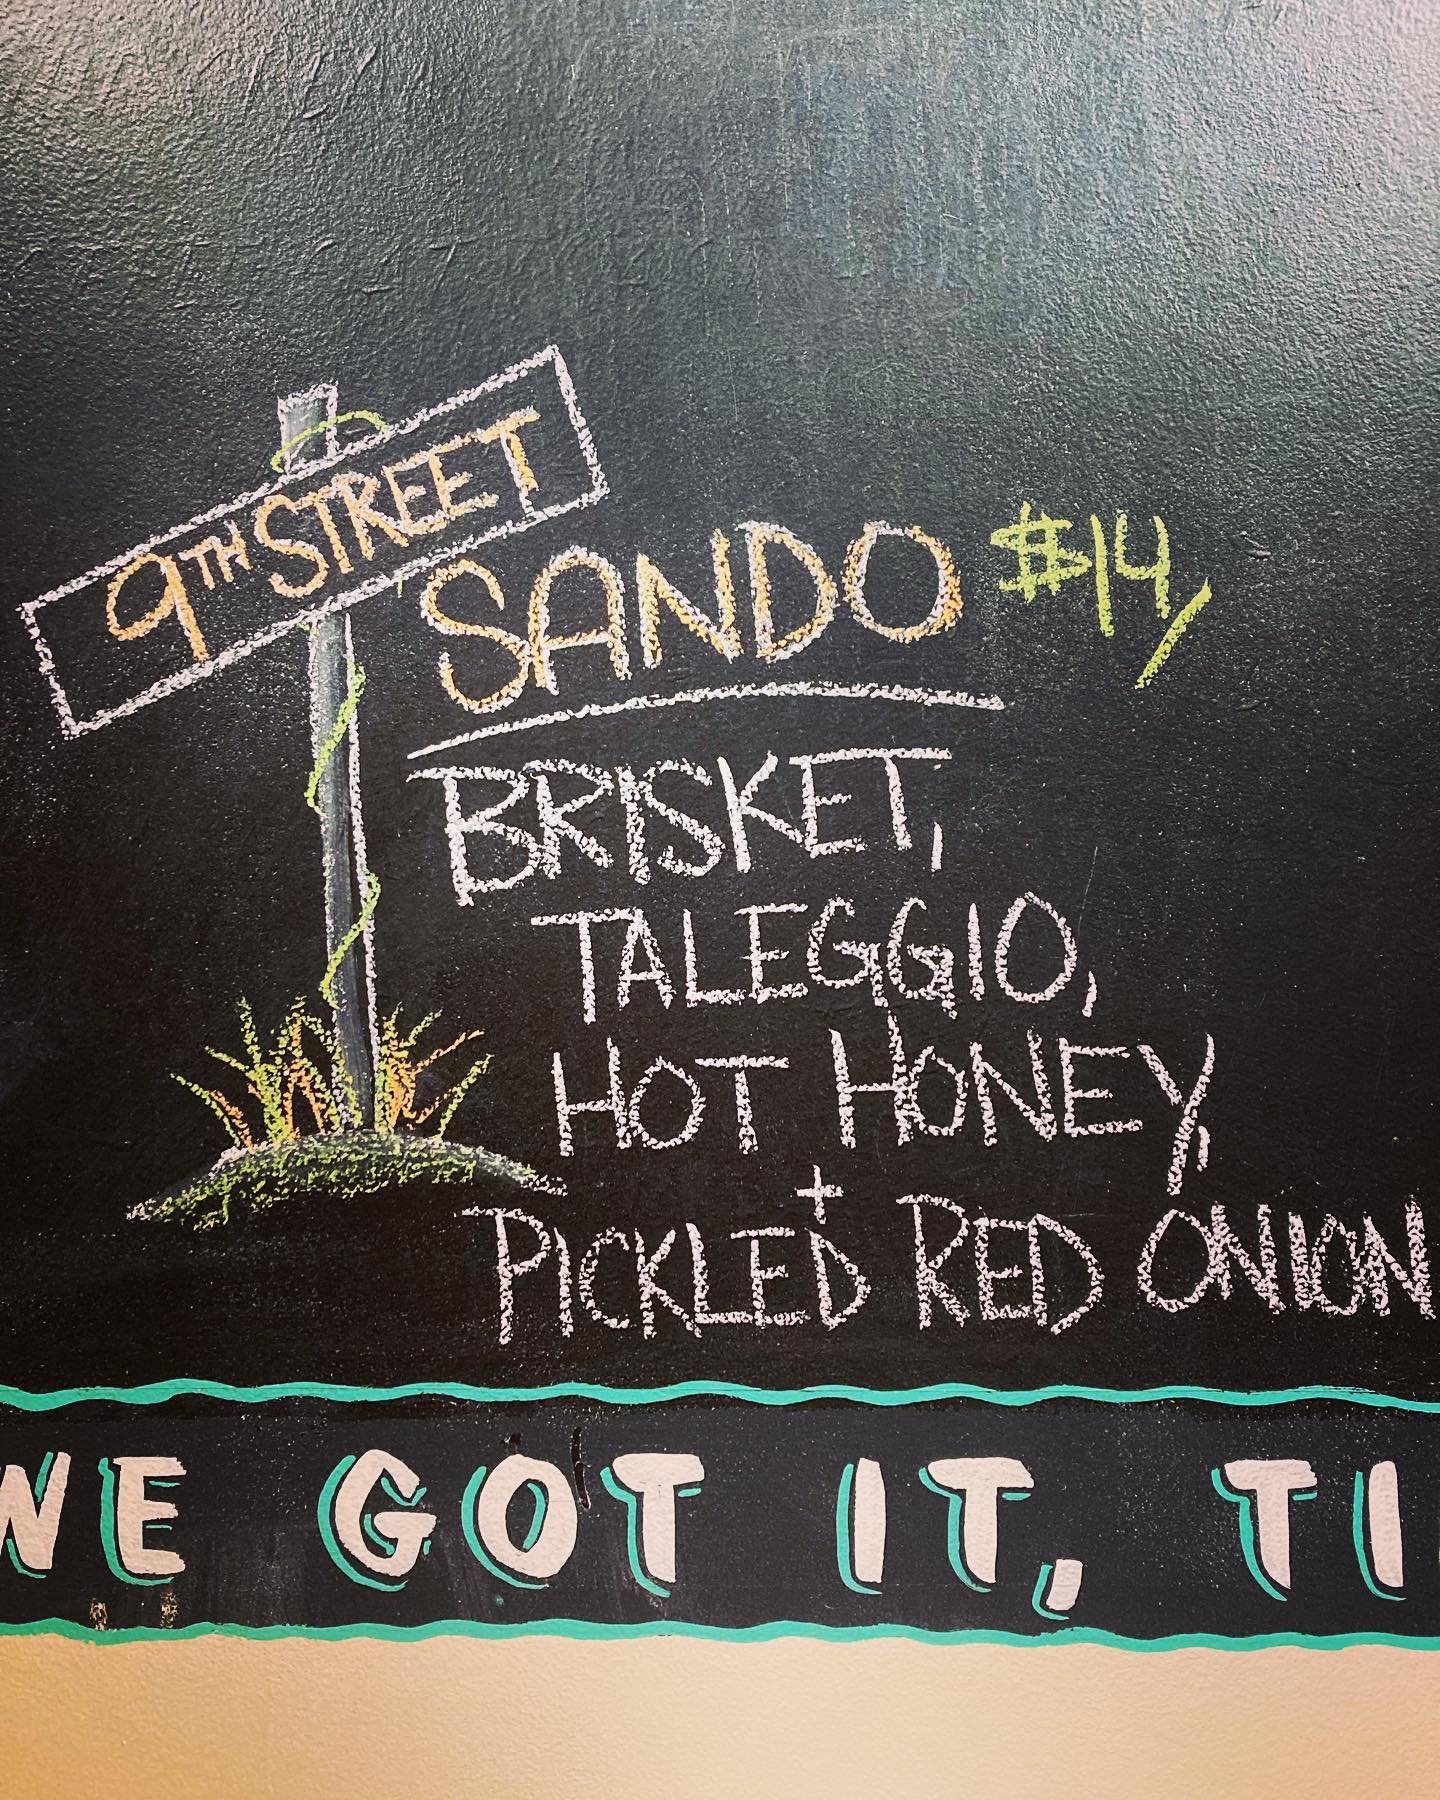 9TH STREET
SANDO $14/
BRISKET,
TALEGGIO,
HOT HONEY,
+
PICKLED RED ONION
WE GOT IT,